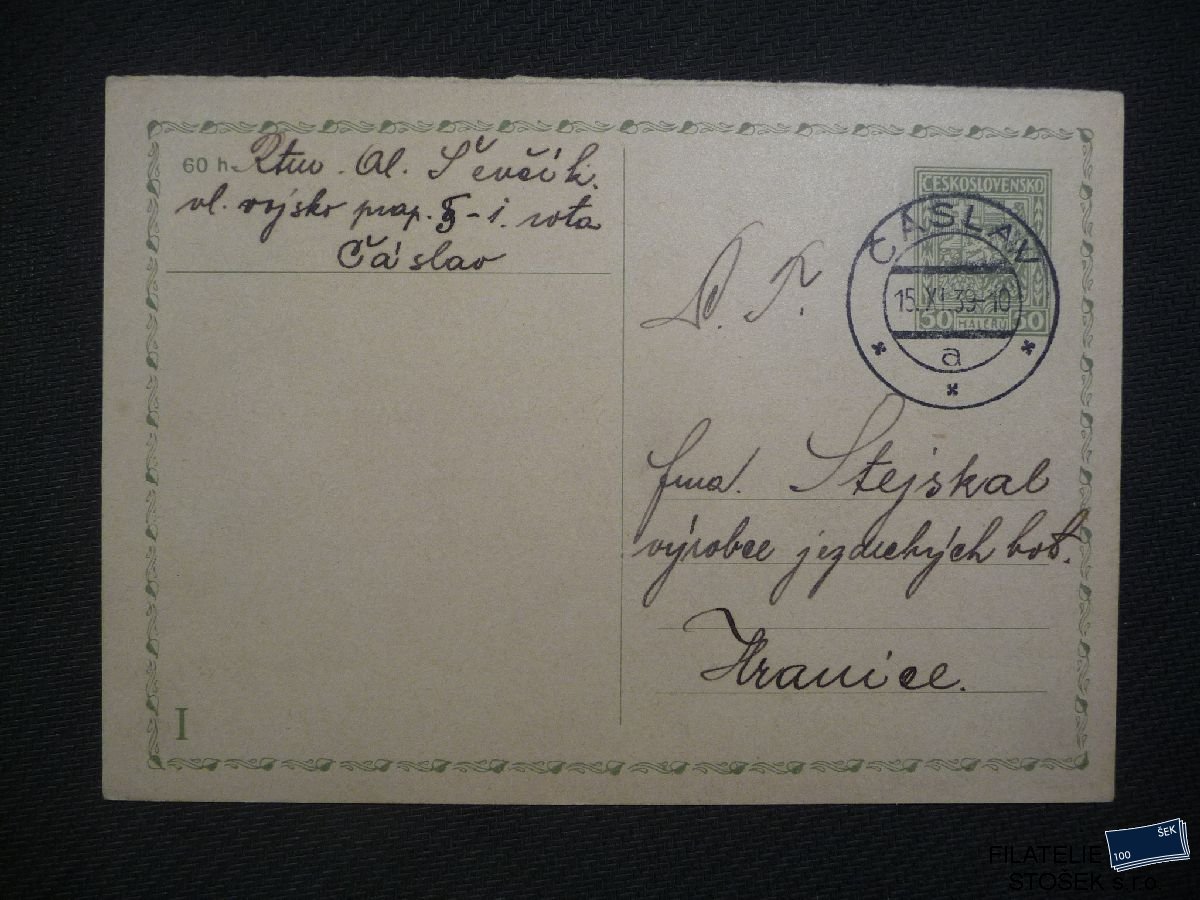 60 h Rtm. Al. Ševčík.
vl. vojsko prap. 5 - 1. rota
Čáslav
ČESKOSLOVENSKO
50 HALÉŘŮ 50
ČÁSLAV
15. XI. 39-10
a
P. T.
fma. Stejskal
výrobce jezdeckých bot.
Hranice.
I
ŠEK
100
FILATELIE
STOŠEK s.r.o.